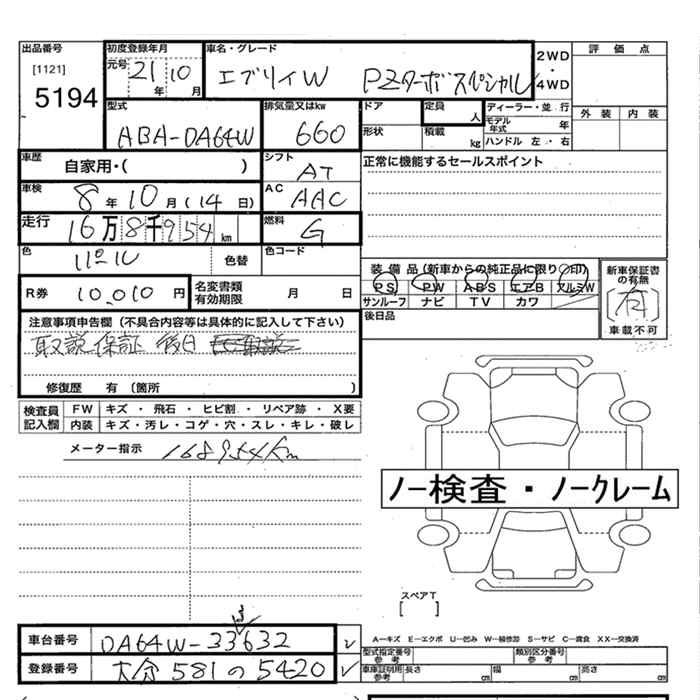 出品番号 初度登録年月 車名・グレード 2WD・4WD 評価点
[1121] 元号 21年 10月 エブリイW PZターボスペシャル
5194
型式 排気量又はkw ドア 定員 人 ディーラー・並行 外装 内装
ABA-DA64W 660 形状 積載 kg モデル年式 年
ハンドル 左・右
車歴 自家用・( ) シフト AT 正常に機能するセールスポイント
車検 8年10月(14日) AC AAC
走行 16万8千954km 燃料 G
色 色替 色コード
R券 10,010円 名変書類有効期限 月 日
装備品(新車からの純正品に限り○印) 新車保証書の有無
PS PW ABS エアB アルミW [有]
サンルーフ ナビ TV カワ 車載不可
後日品
注意事項申告欄(不具合内容等は具体的に記入して下さい)
取説 保証 後日
修復歴 有(箇所 )
検査員記入欄 FW キズ・飛石・ヒビ割・リペア跡・X要
内装 キズ・汚レ・コゲ・穴・スレ・キレ・破レ
メーター指示 168954Km
ノー検査・ノークレーム
スペアT
[ ]
車台番号 DA64W-33632 3
登録番号 大分581の5420
A-キズ E-エクボ U-凹み W-補修跡 S-サビ C-腐食 XX-交換済
型式指定番号 参考 類別区分番号 参考
車庫証明用参考 長さ cm 幅 cm 高さ cm